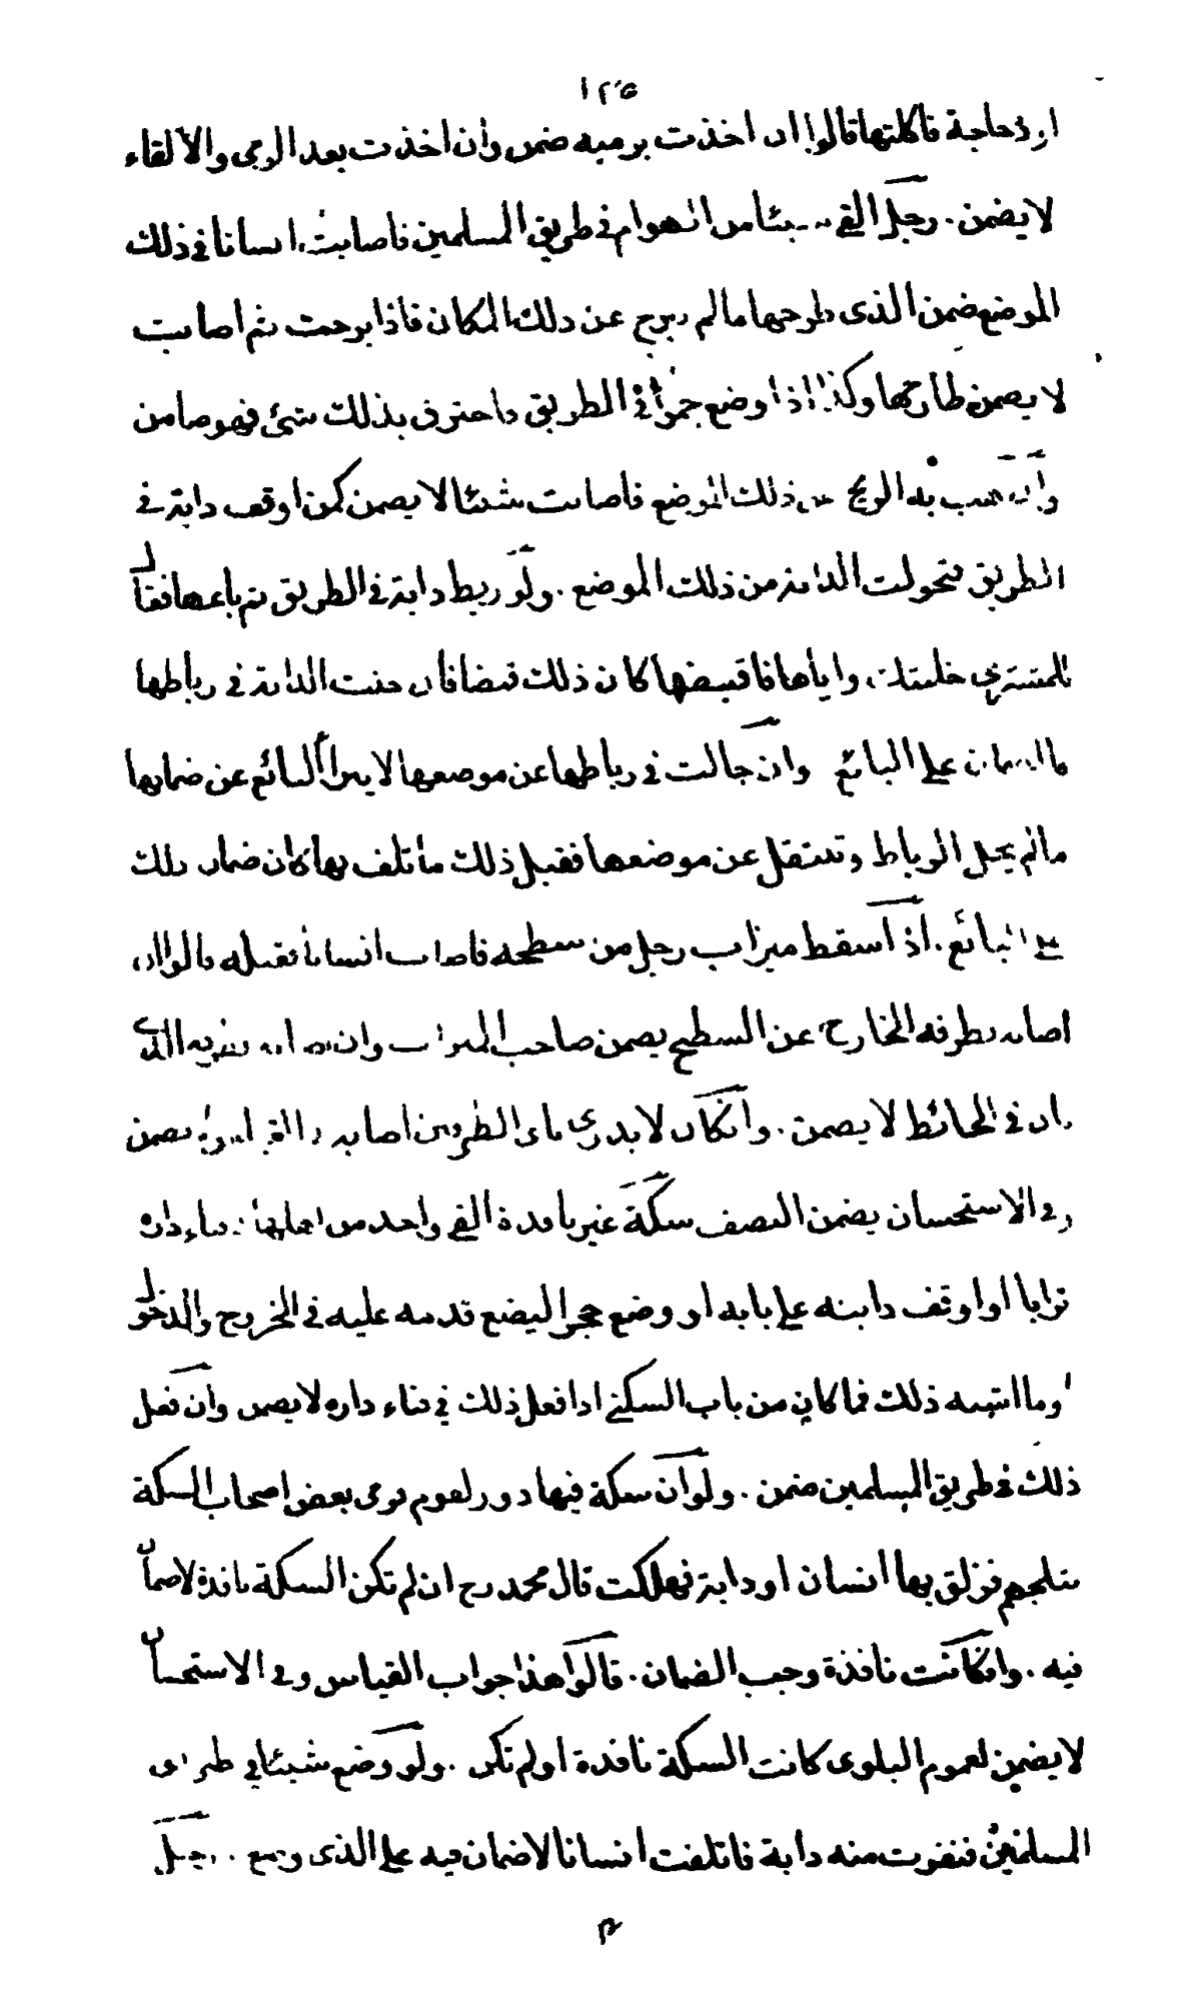 ١٢٥
او دجاجة فاكلتها قالوا ان اخذت برميه ضمن وان اخذت بعد الرمى والالقاء
لا يضمن . رجل القى شيئا من الهوام فى طريق المسلمين فاصابت انسانا فى ذلك
الموضع ضمن الذى طرحها ما لم يبرح عن ذلك المكان فاذا برحت ثم اصابت
لا يضمن طارحها وكذا اذا وضع جمرا فى الطريق فاحترق بذلك شئ فهو ضامن
وان به الريح عن ذلك الموضع فاصابت شيئا لا يضمن كمن اوقف دابة فى
الطريق فتحولت الدابة من ذلك الموضع . ولو ربط دابة فى الطريق ثم باعها فقال
للمشترى خليتك واياها فاقبضها كان ذلك قبضا فان جنت الدابة فى رباطها
فالضمان على البائع وان جالت فى رباطها عن موضعها لا يبرأ البائع عن ضمانها
ما لم يحل الرباط وتنتقل عن موضعها فقبل ذلك ما تلف بها كان ضمان ذلك
على البائع . اذا سقط ميزاب رجل من سطحه فاصاب انسانا فقتله قالوا ان
اصابه بطرفه الخارج عن السطح يضمن صاحب الميزاب وان اصابه بطرفه الذى
كان فى الحائط لا يضمن . وانكان لا يدرى باى الطرفين اصابه فالقياس لا يضمن
وفى الاستحسان يضمن النصف سكة غير نافذة القى واحد من اهلها بفناء داره
ترابا او اوقف دابته على بابه او وضع حجرا ليضع قدمه عليه فى الخروج والدخول
وما اشبه ذلك فما كان من باب السكنى اذا فعل ذلك فى فناء داره لا يضمن وان فعل
ذلك فى طريق المسلمين ضمن . ولو ان سكة فيها دور لقوم فرمى بعض اصحاب السكة
بثلجهم فزلق بها انسان او دابة فهلكت قال محمد رح ان لم تكن السكة نافذة لا ضمان
فيه . وانكانت نافذة وجب الضمان . قالوا هذا جواب القياس وفى الاستحسان
لا يضمن لعموم البلوى كانت السكة نافذة او لم تكن . ولو وضع شيئا فى طريق
المسلمين فنفرت منه دابة فاتلفت انسانا لا ضمان فيه على الذى وضع . رجل
م